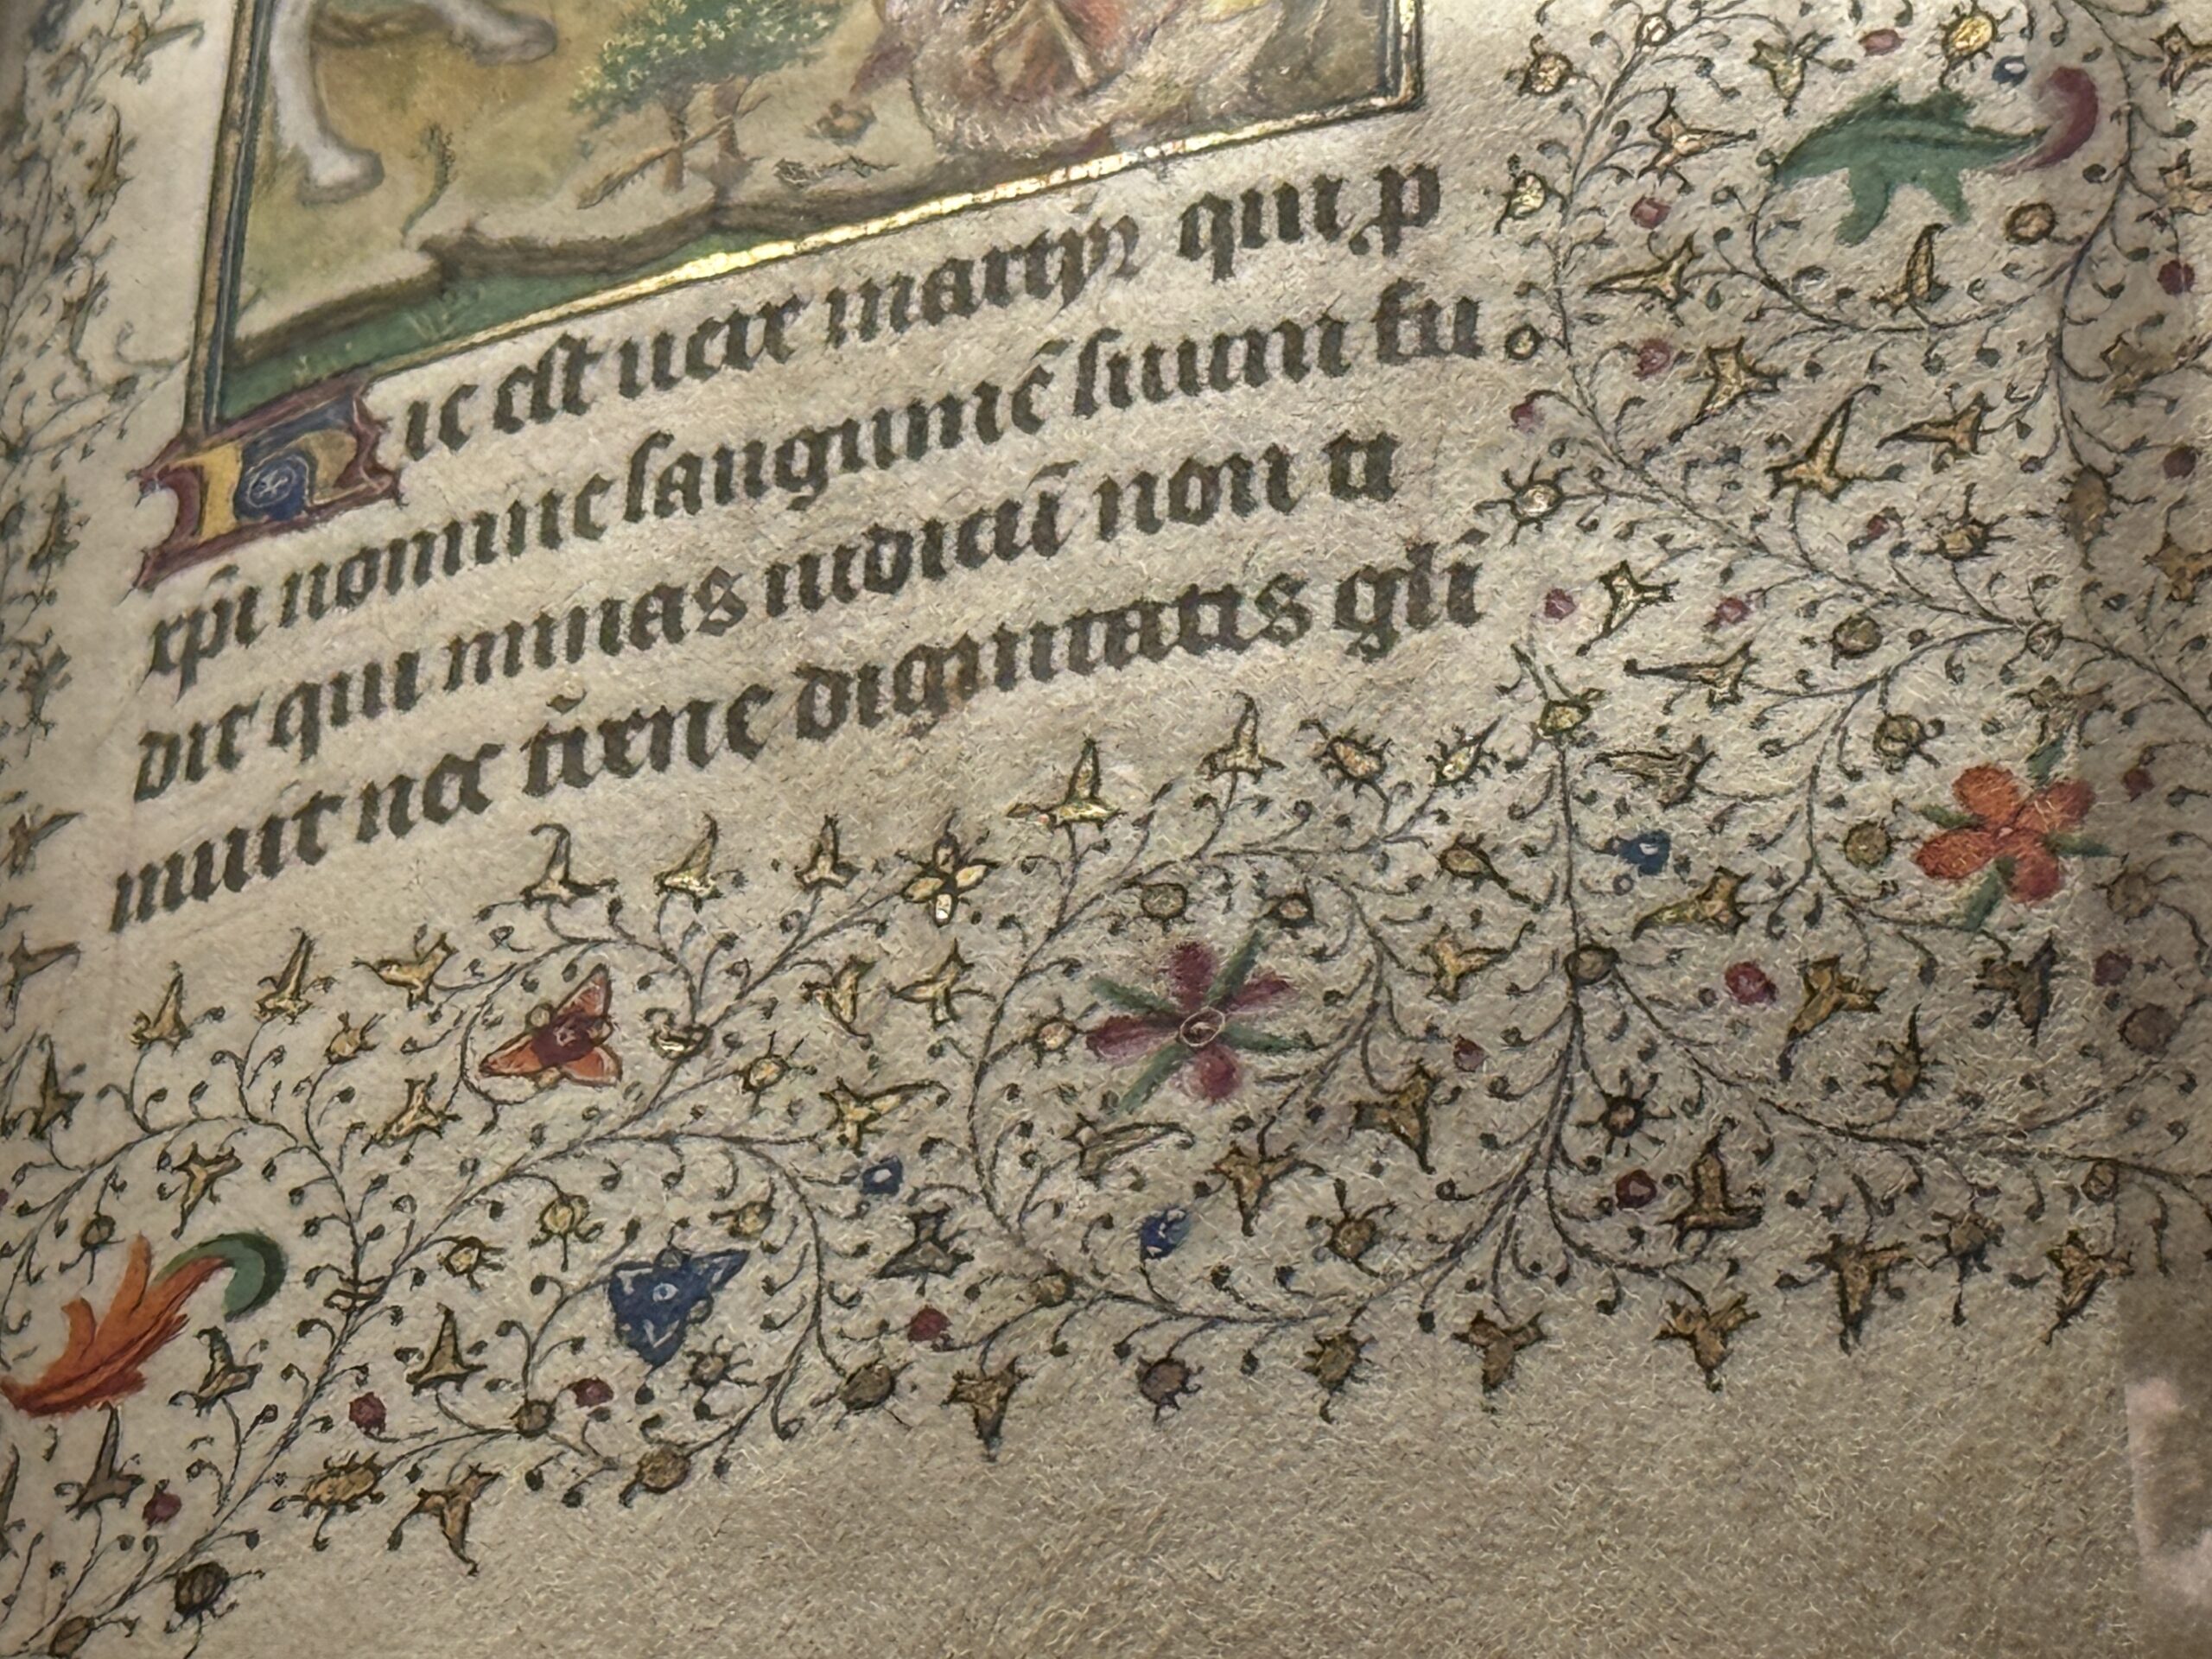 Hic est uere martyr qui p
xpi nomine sanguinē suum fu
dit qui minas iudicū non ti
muit nec tr̄ene dignitatis glī